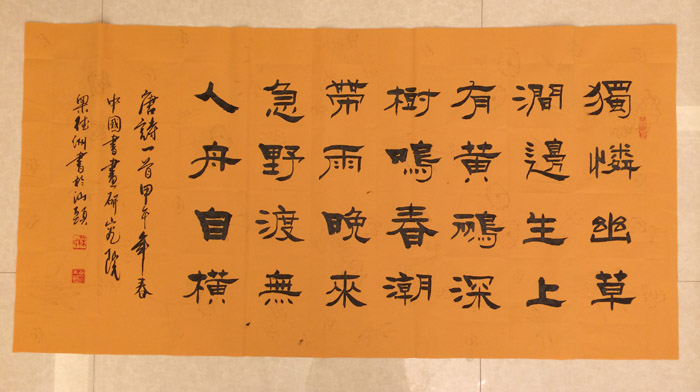 獨憐幽草
澗邊生上
有黃鸝深
樹鳴春潮
帶雨晚來
急野渡無
人舟自橫
唐詩一首甲午年春
中國書畫研究院
洲書於汕頭